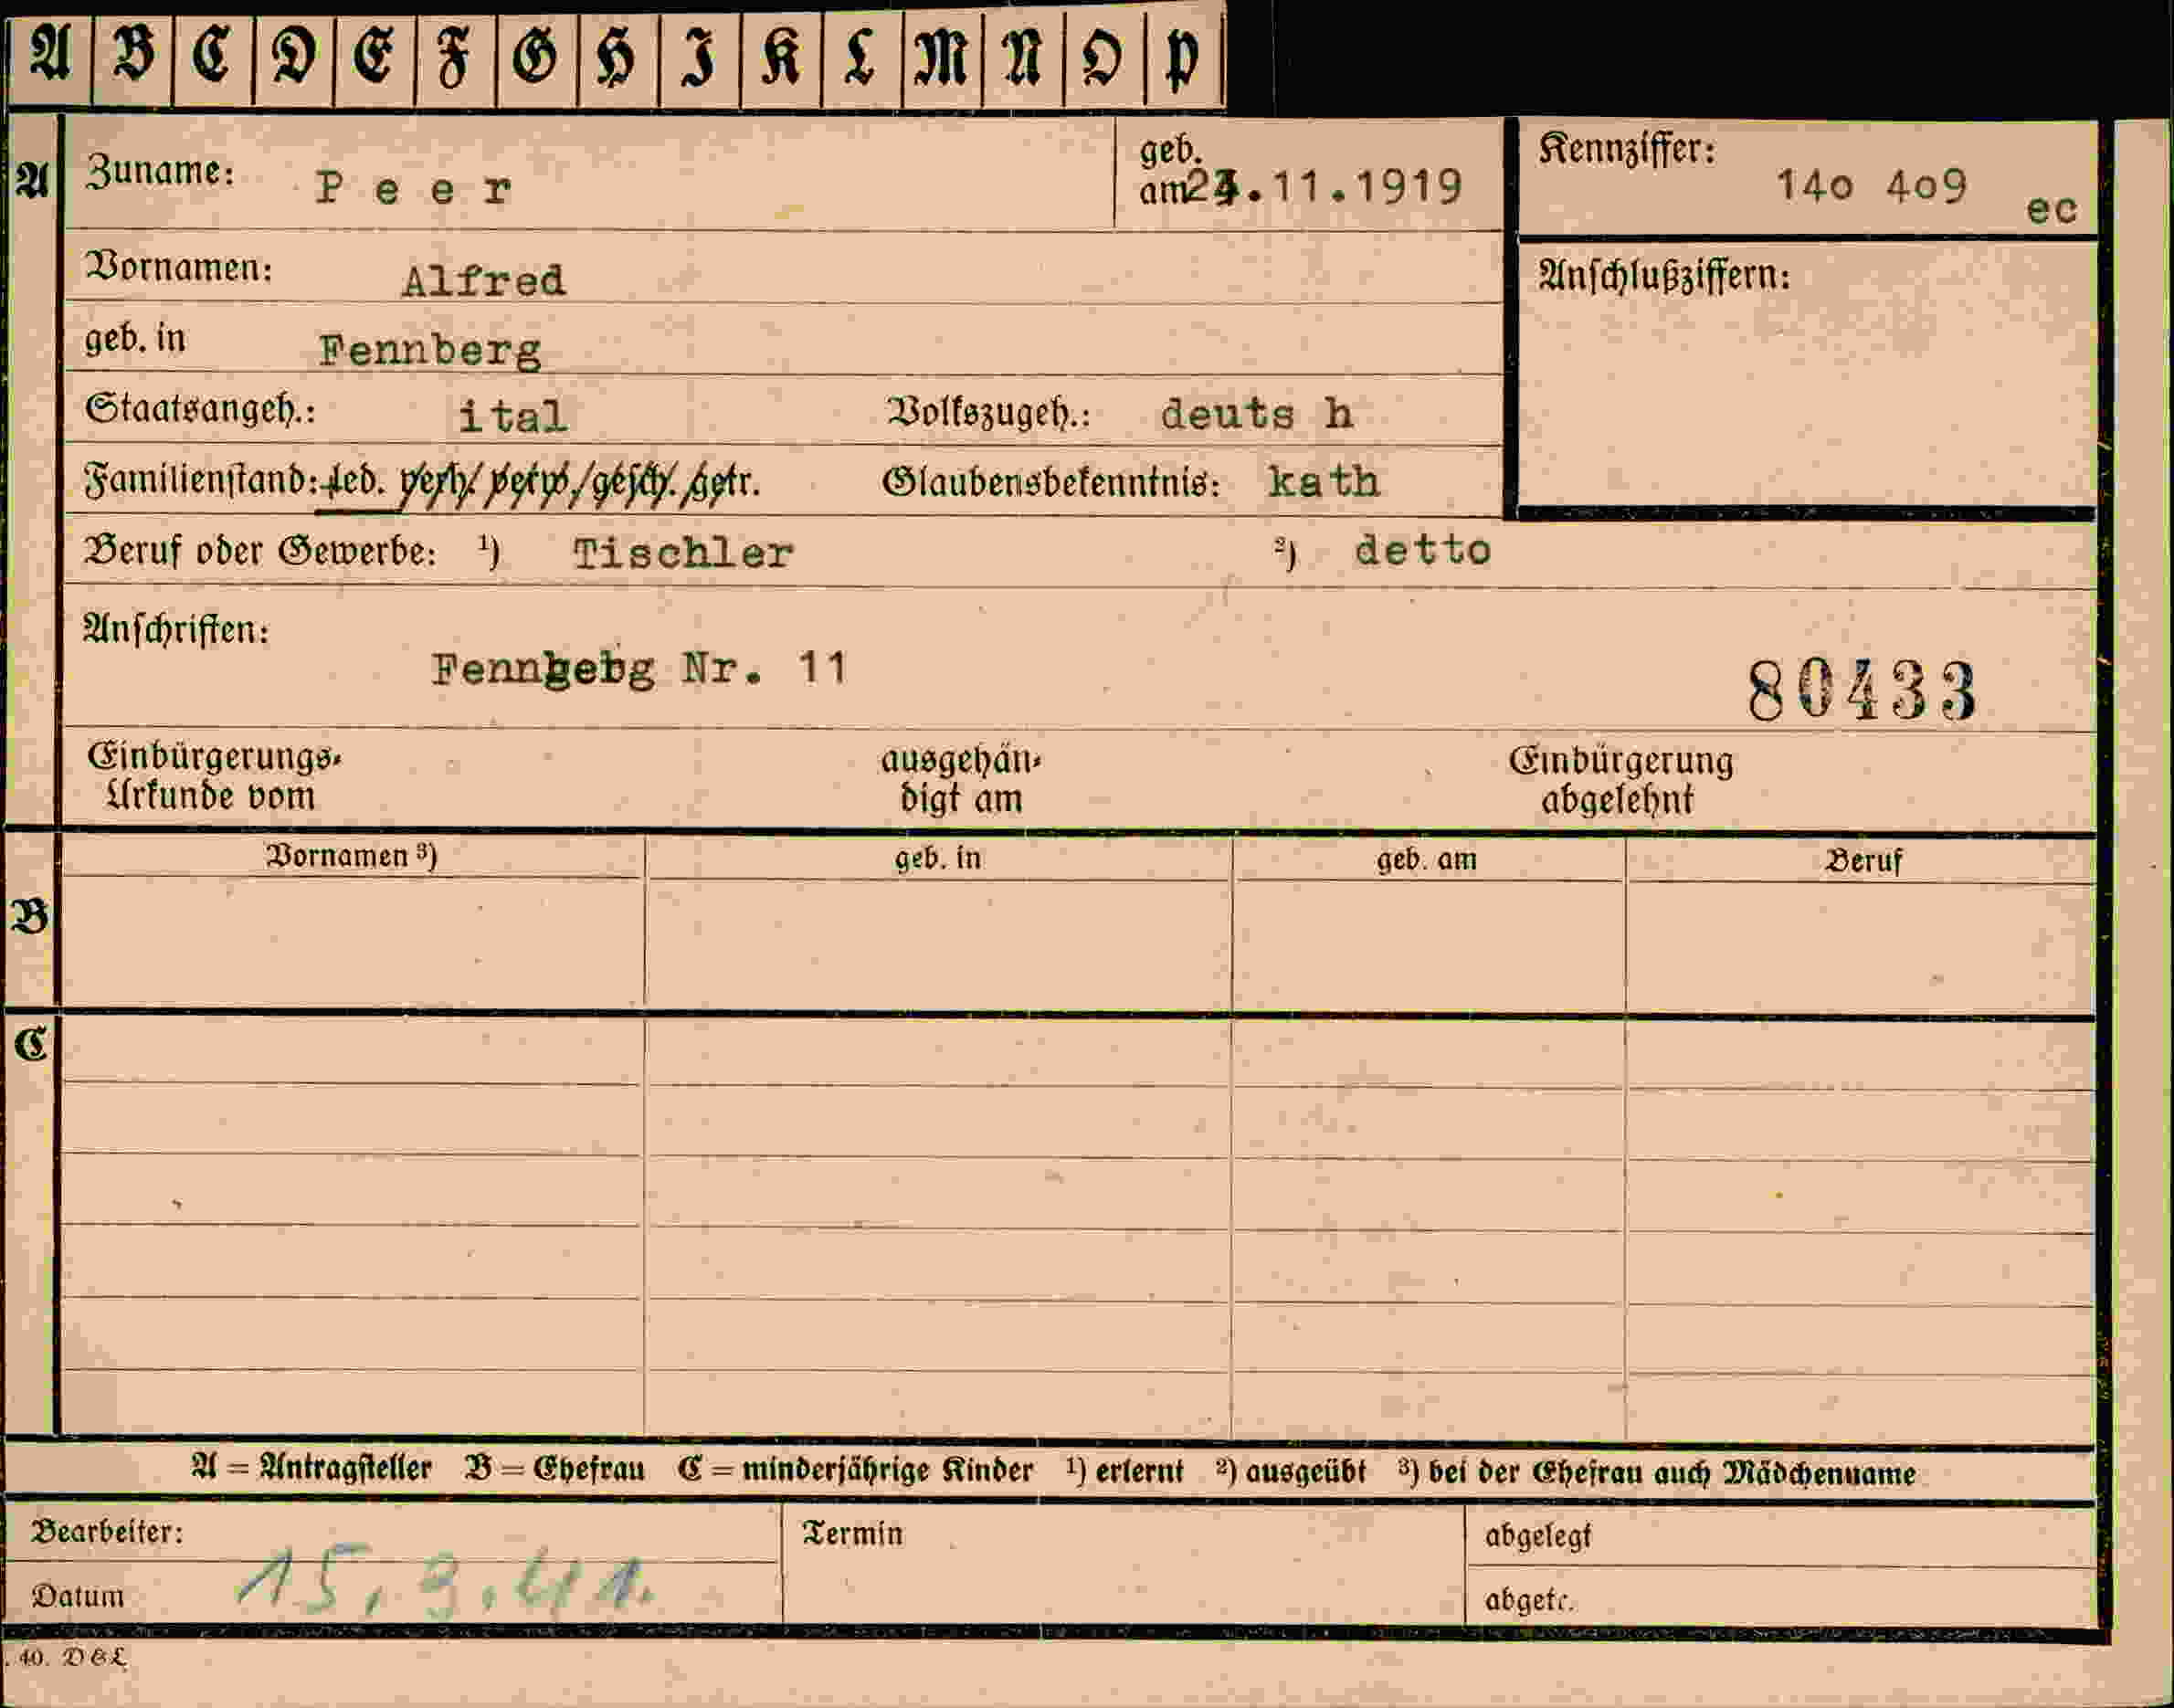 A B C D E F G H I K L M N O P
A Zuname: Peer geb. am 23.11.1919 Kennziffer: 14o 4o9 ec
Vornamen: Alfred Anschlußziffern:
geb. in Fennberg
Staatsangeh.: ital Volkszugeh.: deuts h
Familienstand: led. verh. verw. gesch. getr. Glaubensbekenntnis: kath
Beruf oder Gewerbe: ¹) Tischler ²) detto
Anschriften:
Nr. 11
80433
Einbürgerungs- ausgehän- Einbürgerung
Urkunde vom digt am abgelehnt
Vornamen ³) geb. in geb. am Beruf
B
C
A = Antragsteller B = Ehefrau C = minderjährige Kinder ¹) erlernt ²) ausgeübt ³) bei der Ehefrau auch Mädchenname
Bearbeiter: Termin abgelegt
Datum 15.3.41. abgetr.
40. D&L